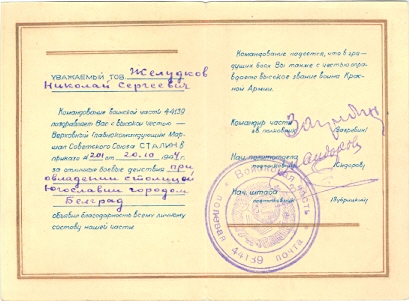 УВАЖАЕМЫЙ ТОВ. Желудков
Николай Сергеевич
Командование воинской части 44139
поздравляет Вас с высокой честью —
Верховный Главнокомандующий Мар-
шал Советского Союза СТАЛИН в
приказе № 201 от 20.10.1944 г.
за отличные боевые действия при
овладении столицей
Югославии городом
Белград
объявил благодарность всему личному
составу нашей части.
Командование надеется, что в гря-
дущих боях Вы также с честью опра-
вдаете высокое звание воина Крас-
ной Армии.
Командир части
гв. полковник
Нач. политотдела
(Сидоров)
Нач. штаба
подполковник
Войсковая часть
полевая почта
44139